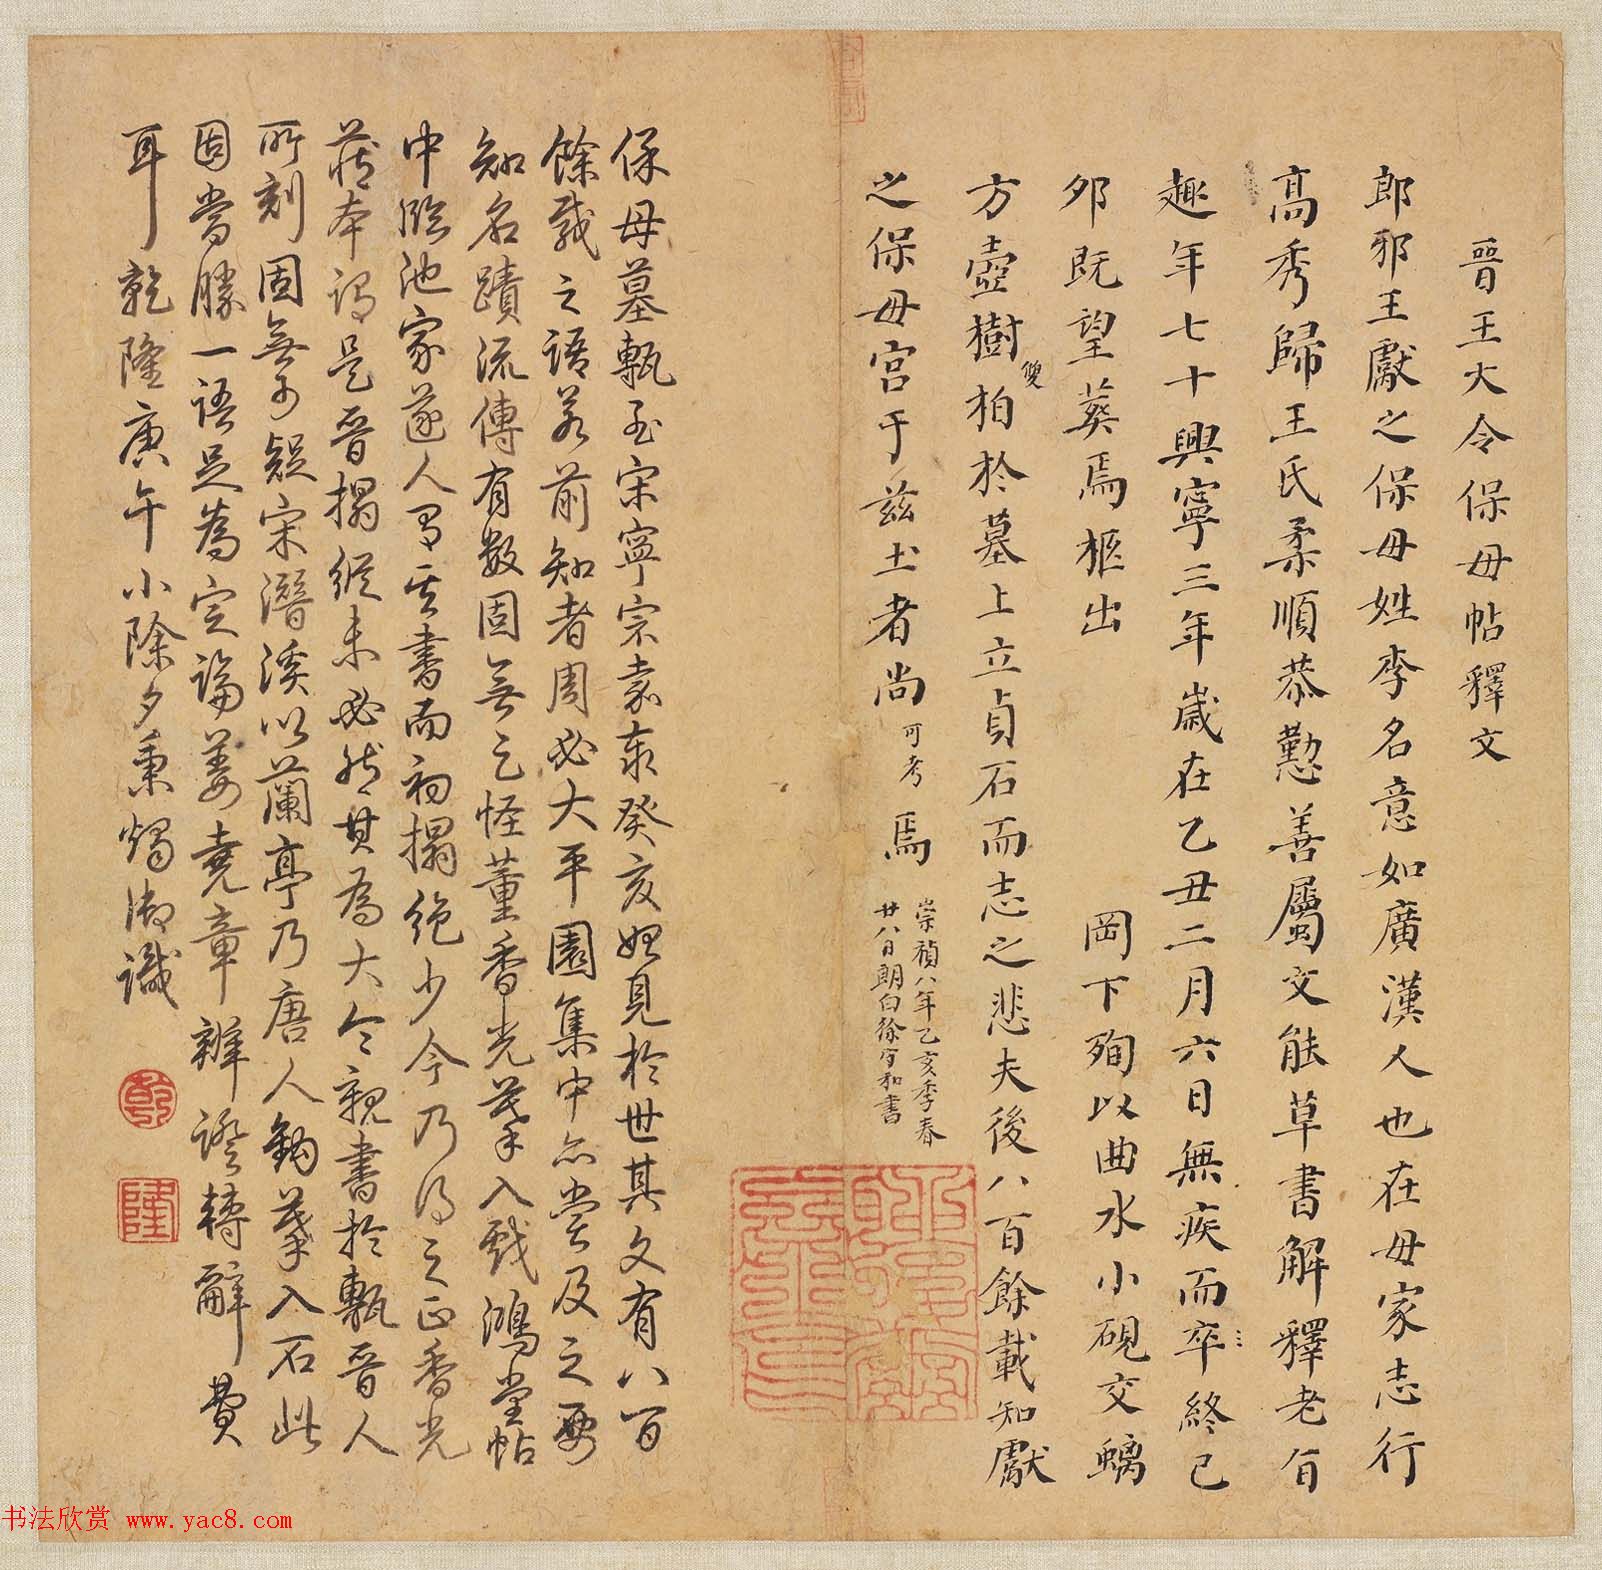 晉王大令保母帖釋文
郎邪王獻之保母姓李名意如廣漢人也在母家志行
高秀歸王氏柔順恭懃善屬文能草書解釋老旨
趣年七十興寧三年歲在乙丑二月六日無疾而卒終已
夘既望葬焉柩出 岡下殉以曲水小硯交螭
方壺樹雙柏於墓上立貞石而志之悲夫後八百餘載知獻
之保母宮于茲土者尚可考焉
崇禎八年乙亥季春
廿八日朗白徐守和書
保母墓甎至宋寧宗嘉泰癸亥始見於世其文有八百
餘載之語若前知者周必大平園集中亦嘗及之要
知名蹟流傳有數固無足怪董香光摹入戲鴻堂帖
中脁池家遂人有其書而初搨絕少今乃得之正香光
藏本謂是晉搨縱未必然其為大令親書於甎晉人
所刻固無可疑宋潛溪以蘭亭乃唐人鉤摹入石此
固當勝一語足為定論姜堯章辨證轉辭費
耳乾隆庚午小除夕秉燭御識
乾
隆
书法欣赏 www.yac8.com